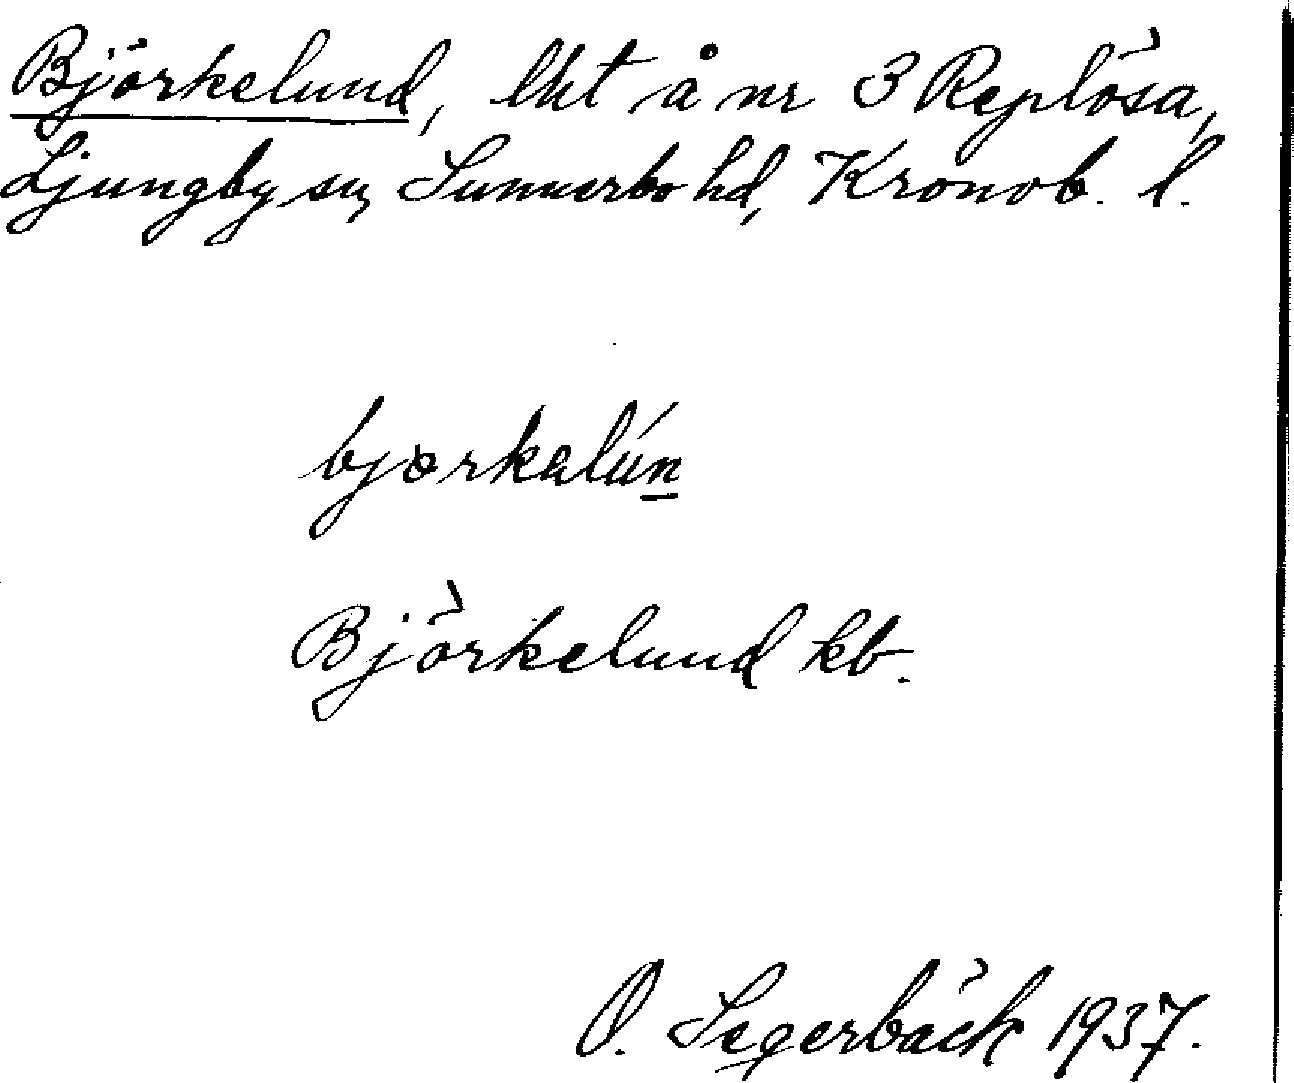 Björkelund, lht å nr 3 Replösa,
Ljungby sn, Sunnerbo hd, Kronob. l.
bjørkalún
Björkelund kb.
O. Segerbäck 1937.